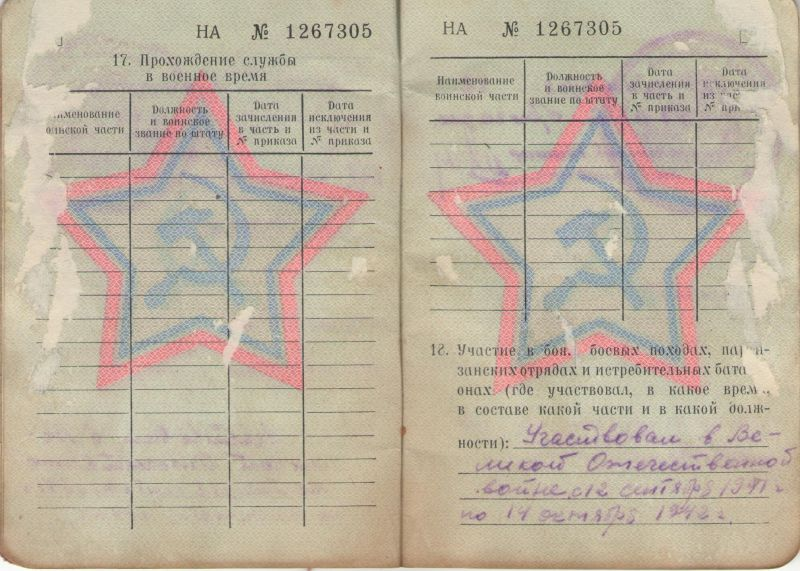 НА № 1267305
17. Прохождение службы
в военное время
именование
оинской части
Должность
и воинское
звание по штату
Дата
зачисления
в часть и
№ приказа
Дата
исключения
из части и
№ приказа
НА № 1267305
Наименование
воинской части
Должность
и воинское
звание по штату
Дата
зачисления
в часть и
№ приказа
Дата
исключения
из час
№ при
18. Участие в боя, боевых походах, пар и-
занских отрядах и истребительных бата
онах (где участвовал, в какое врем
в составе какой части и в какой долж-
ности): Участвовал в Ве-
ликой Отечественной
войне с 12 сентября 1941 г
по 14 октября 1942 г.